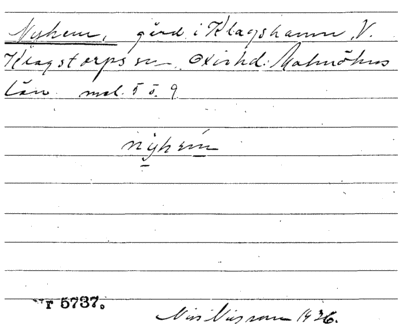 Nyhem, gård i Klagshamn, V.
Klagstorps sn Oxie hd. Malmöhus
län. mal. 5 ö. 9
nỳhém
r 5737.
Nils Nilsson 1936.